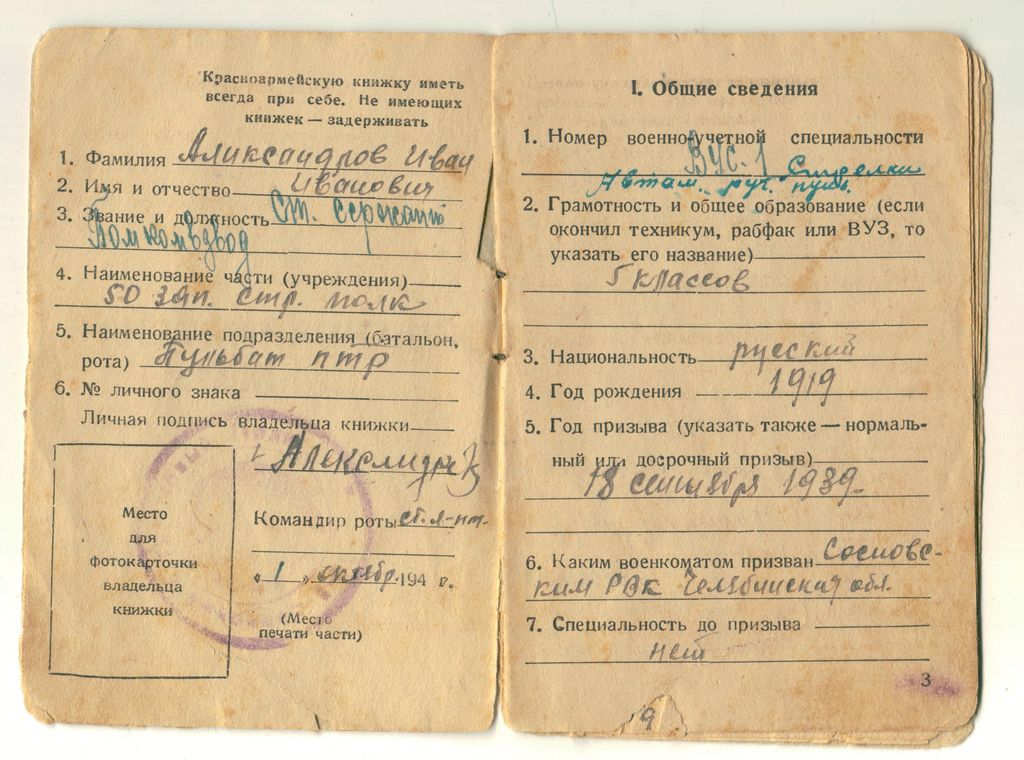 Красноармейскую книжку иметь
всегда при себе. Не имеющих
книжек — задерживать
1. Фамилия Александров Иван
2. Имя и отчество Иванович
3. Звание и должность Ст. сержант
Помкомвзвод
4. Наименование части (учреждения)
50 зап. стр. полк
5. Наименование подразделения (батальон,
рота) Пульбат птр
6. № личного знака
Личная подпись владельца книжки
Александров
Место
для
фотокарточки
владельца
книжки
Командир роты ст. л-нт.
« 1 » октябр. 194 г.
(Место
печати части)
I. Общие сведения
1. Номер военно-учетной специальности
ВУС-1 Стрелки
Автом. руч. пул.
2. Грамотность и общее образование (если
окончил техникум, рабфак или ВУЗ, то
указать его название)
5 классов
3. Национальность русский
4. Год рождения 1919
5. Год призыва (указать также — нормаль-
ный или досрочный призыв)
18 сентября 1939
6. Каким военкоматом призван Сосновс-
ким РВК Челябинская обл.
7. Специальность до призыва
нет
3
9